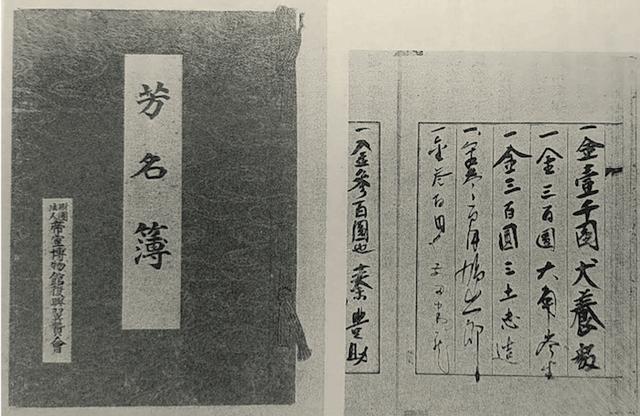 芳名簿
財團
法人
帝室博物館復興翼賛會
一金壹千圓 犬養毅
一金三百圓 大角岑生
一金三百圓 三土忠造
一金参百円 鳩山一郎
一金参百円
一金参百圓也 秦豊助